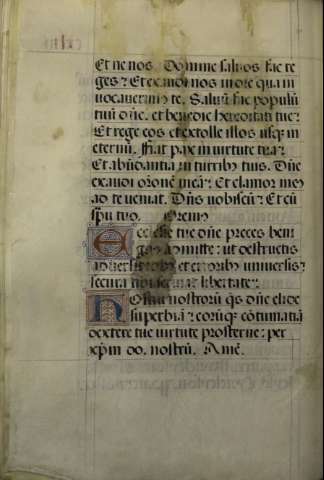 Et ne nos. Domine saluos fac re
ges? Et exaudi nos in die qua in
uocauerim9 te. Saluū fac populū
tuū dn̄e. et benedic hereditati tue?
Et rege eos et extolle illos usq̄ in
eternū. Fiat pax in uirtute tua?
Et abūdantia in turrib9 tuis. Dn̄e
exaudi oronē meā? Et clamor me9
ad te ueniat. Dn̄s uobiscū? Et cū
spū tuo. Orem9
Ecclesie tue dn̄e preces beni
gn9 admitte? ut destructis
aduersitatib9 et errorib9 uniuersis?
secura tibi seruiat libertate?
Hostiū nostrorū q̄s dn̄e elide
superbiā? et eorūq̄ cōtumatiā
dextere tue uirtute prosterne? per
xp̄m do. nostrū. Amē.